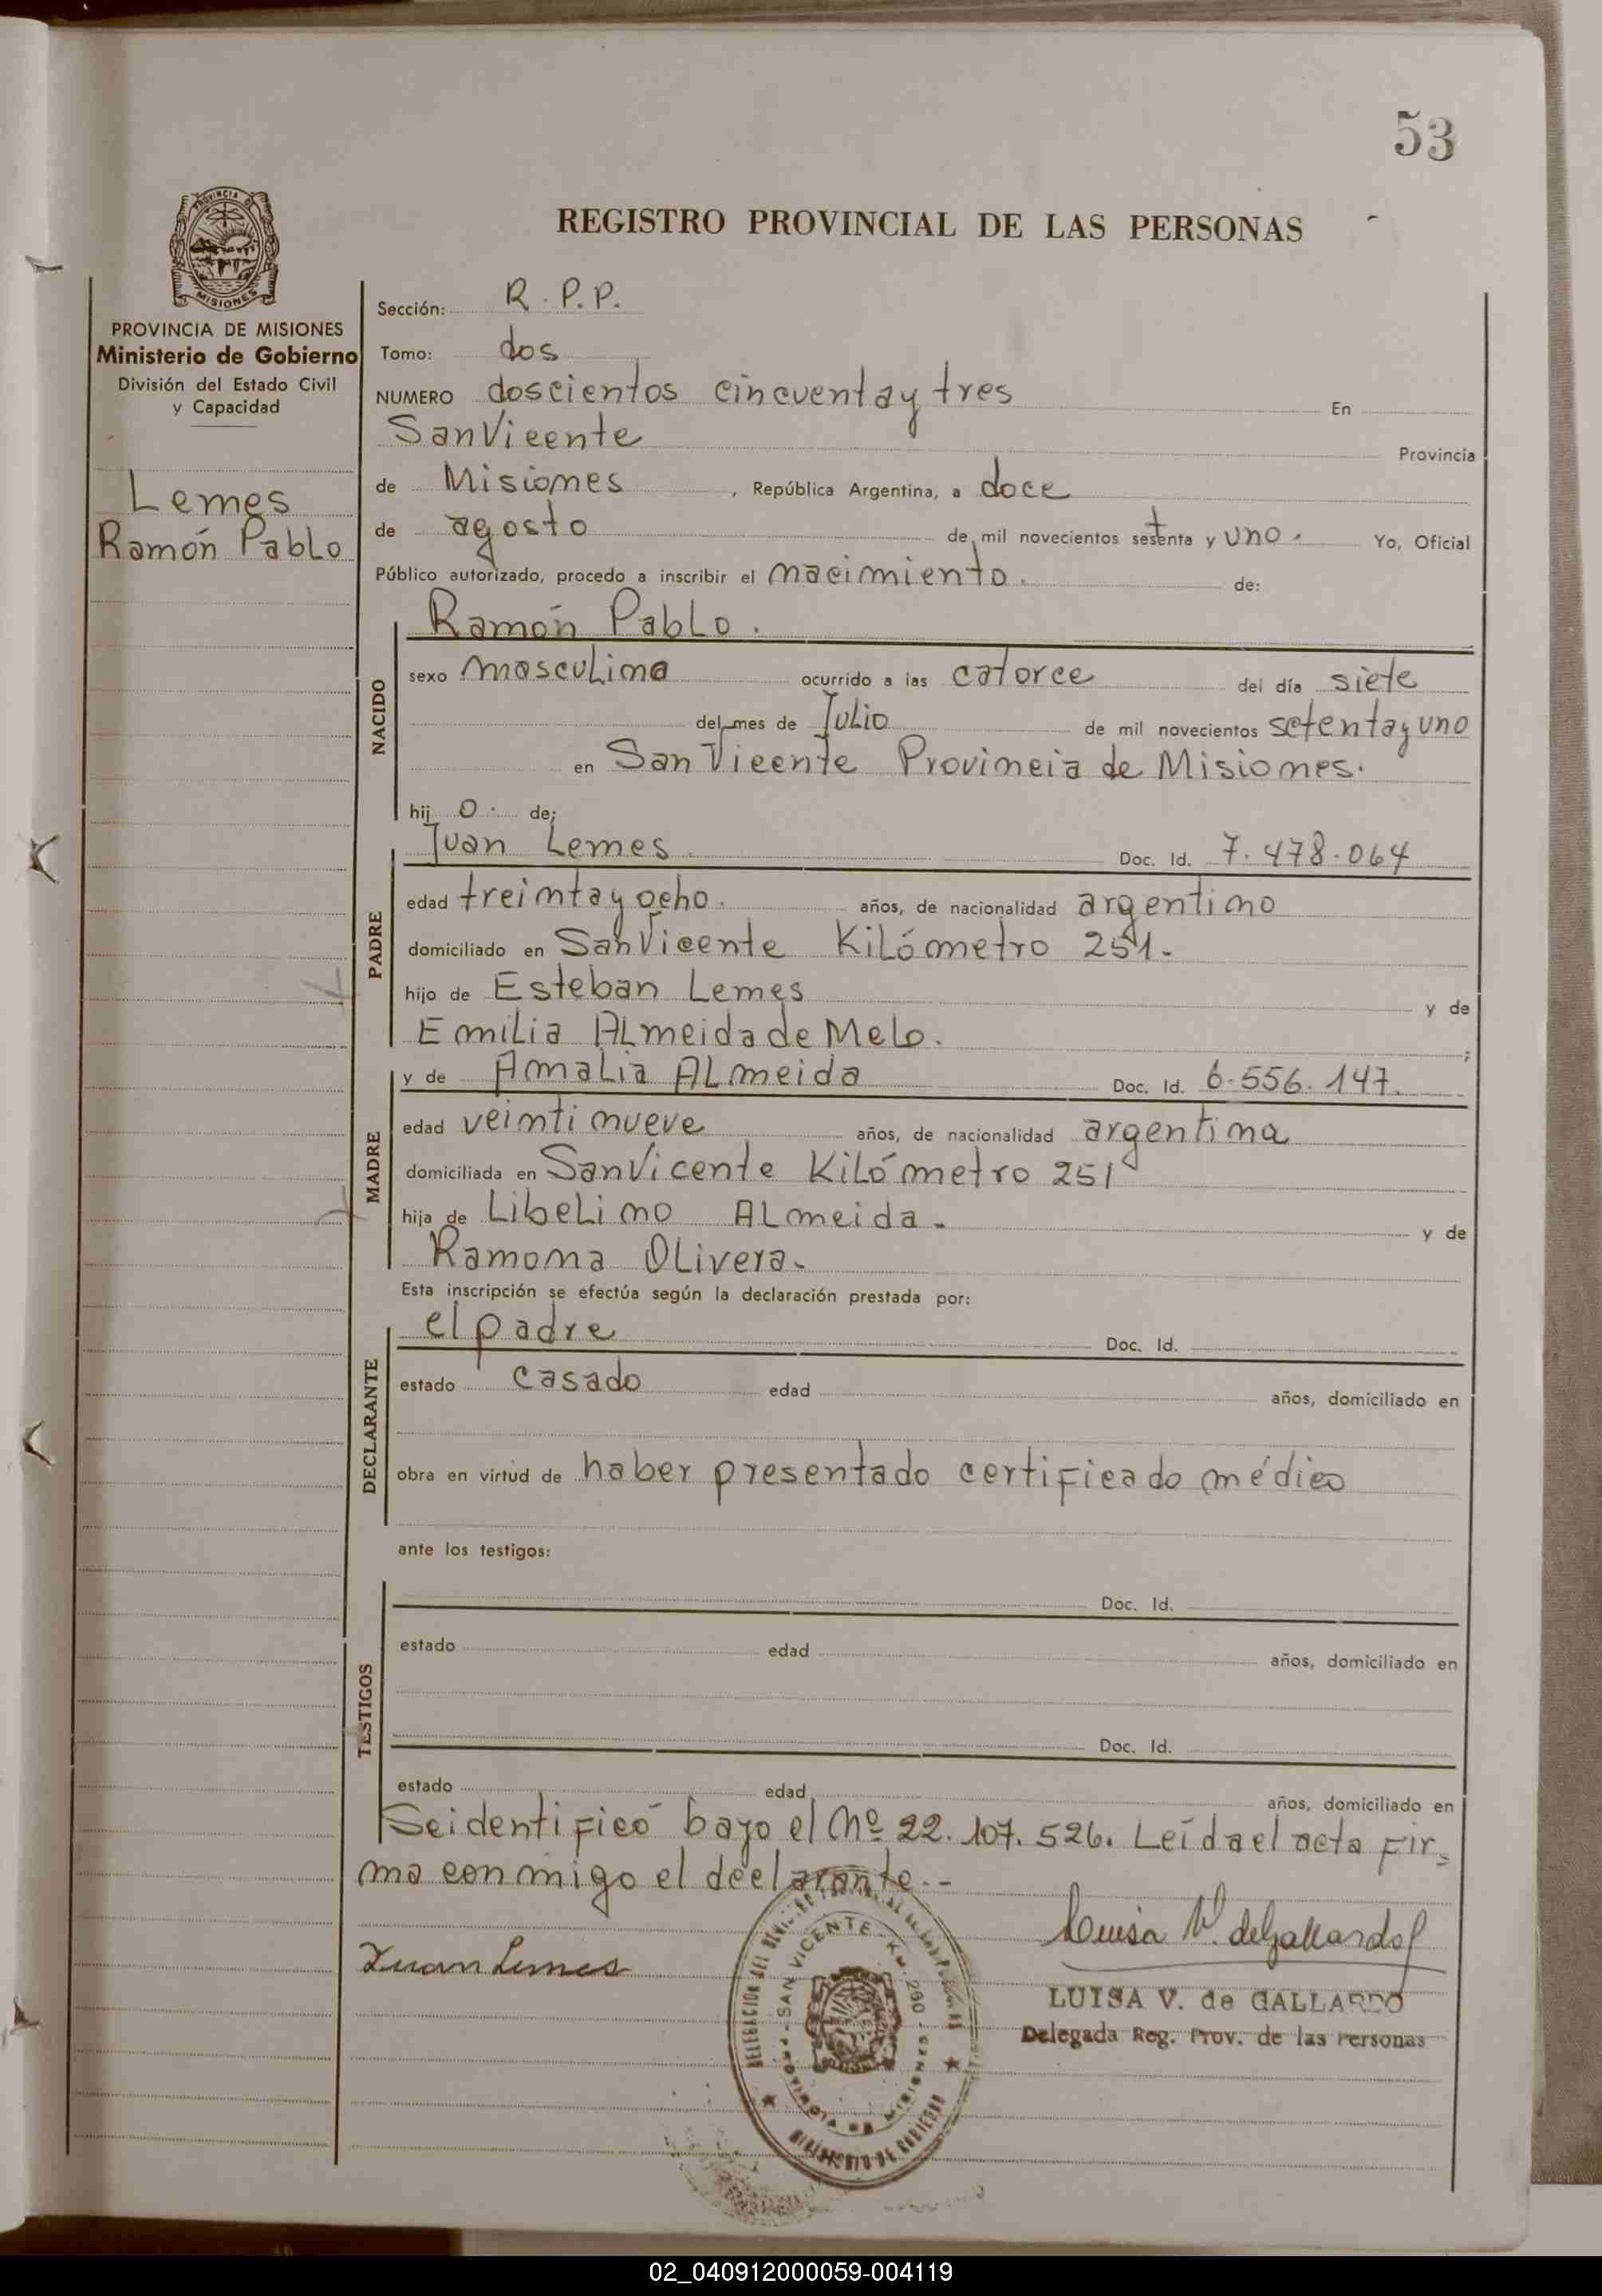 53
REGISTRO PROVINCIAL DE LAS PERSONAS
PROVINCIA DE MISIONES
Ministerio de Gobierno
División del Estado Civil
y Capacidad
Lemes
Ramón Pablo
Sección: R. P. P.
Tomo: dos
NUMERO doscientos cincuenta y tres En
San Vicente Provincia
de Misiones, República Argentina, a doce
de agosto de mil novecientos setenta y uno. Yo, Oficial
Público autorizado, procedo a inscribir el nacimiento. de:
NACIDO
Ramón Pablo.
sexo masculino ocurrido a las catorce del día siete
del mes de Julio de mil novecientos setenta y uno
en San Vicente Provincia de Misiones.
hij o. de:
PADRE
Juan Lemes. Doc. Id. 7.478.064
edad treinta y ocho. años, de nacionalidad argentino
domiciliado en San Vicente Kilómetro 251.
hijo de Esteban Lemes y de
Emilia Almeida de Melo. ;
MADRE
y de Amalia Almeida Doc. Id. 6.556.147.
edad veintinueve años, de nacionalidad argentina
domiciliada en San Vicente Kilómetro 251
hija de Libelino Almeida. y de
Ramona Olivera.
Esta inscripción se efectúa según la declaración prestada por:
DECLARANTE
el padre Doc. Id.
estado casado edad años, domiciliado en
obra en virtud de haber presentado certificado médico
ante los testigos:
TESTIGOS
Doc. Id.
estado edad años, domiciliado en
Doc. Id.
estado edad años, domiciliado en
Se identificó bajo el Nº 22.107.526. Leída el acta fir=
ma conmigo el declarante.-
Juan Lemes
Luisa V. de Gallardo
LUISA V. de GALLARDO
Delegada Reg. Prov. de las Personas
SAN VICENTE - KM. 260 -
PROVINCIA DE MISIONES
MINISTERIO DE GOBIERNO
02_040912000059-004119